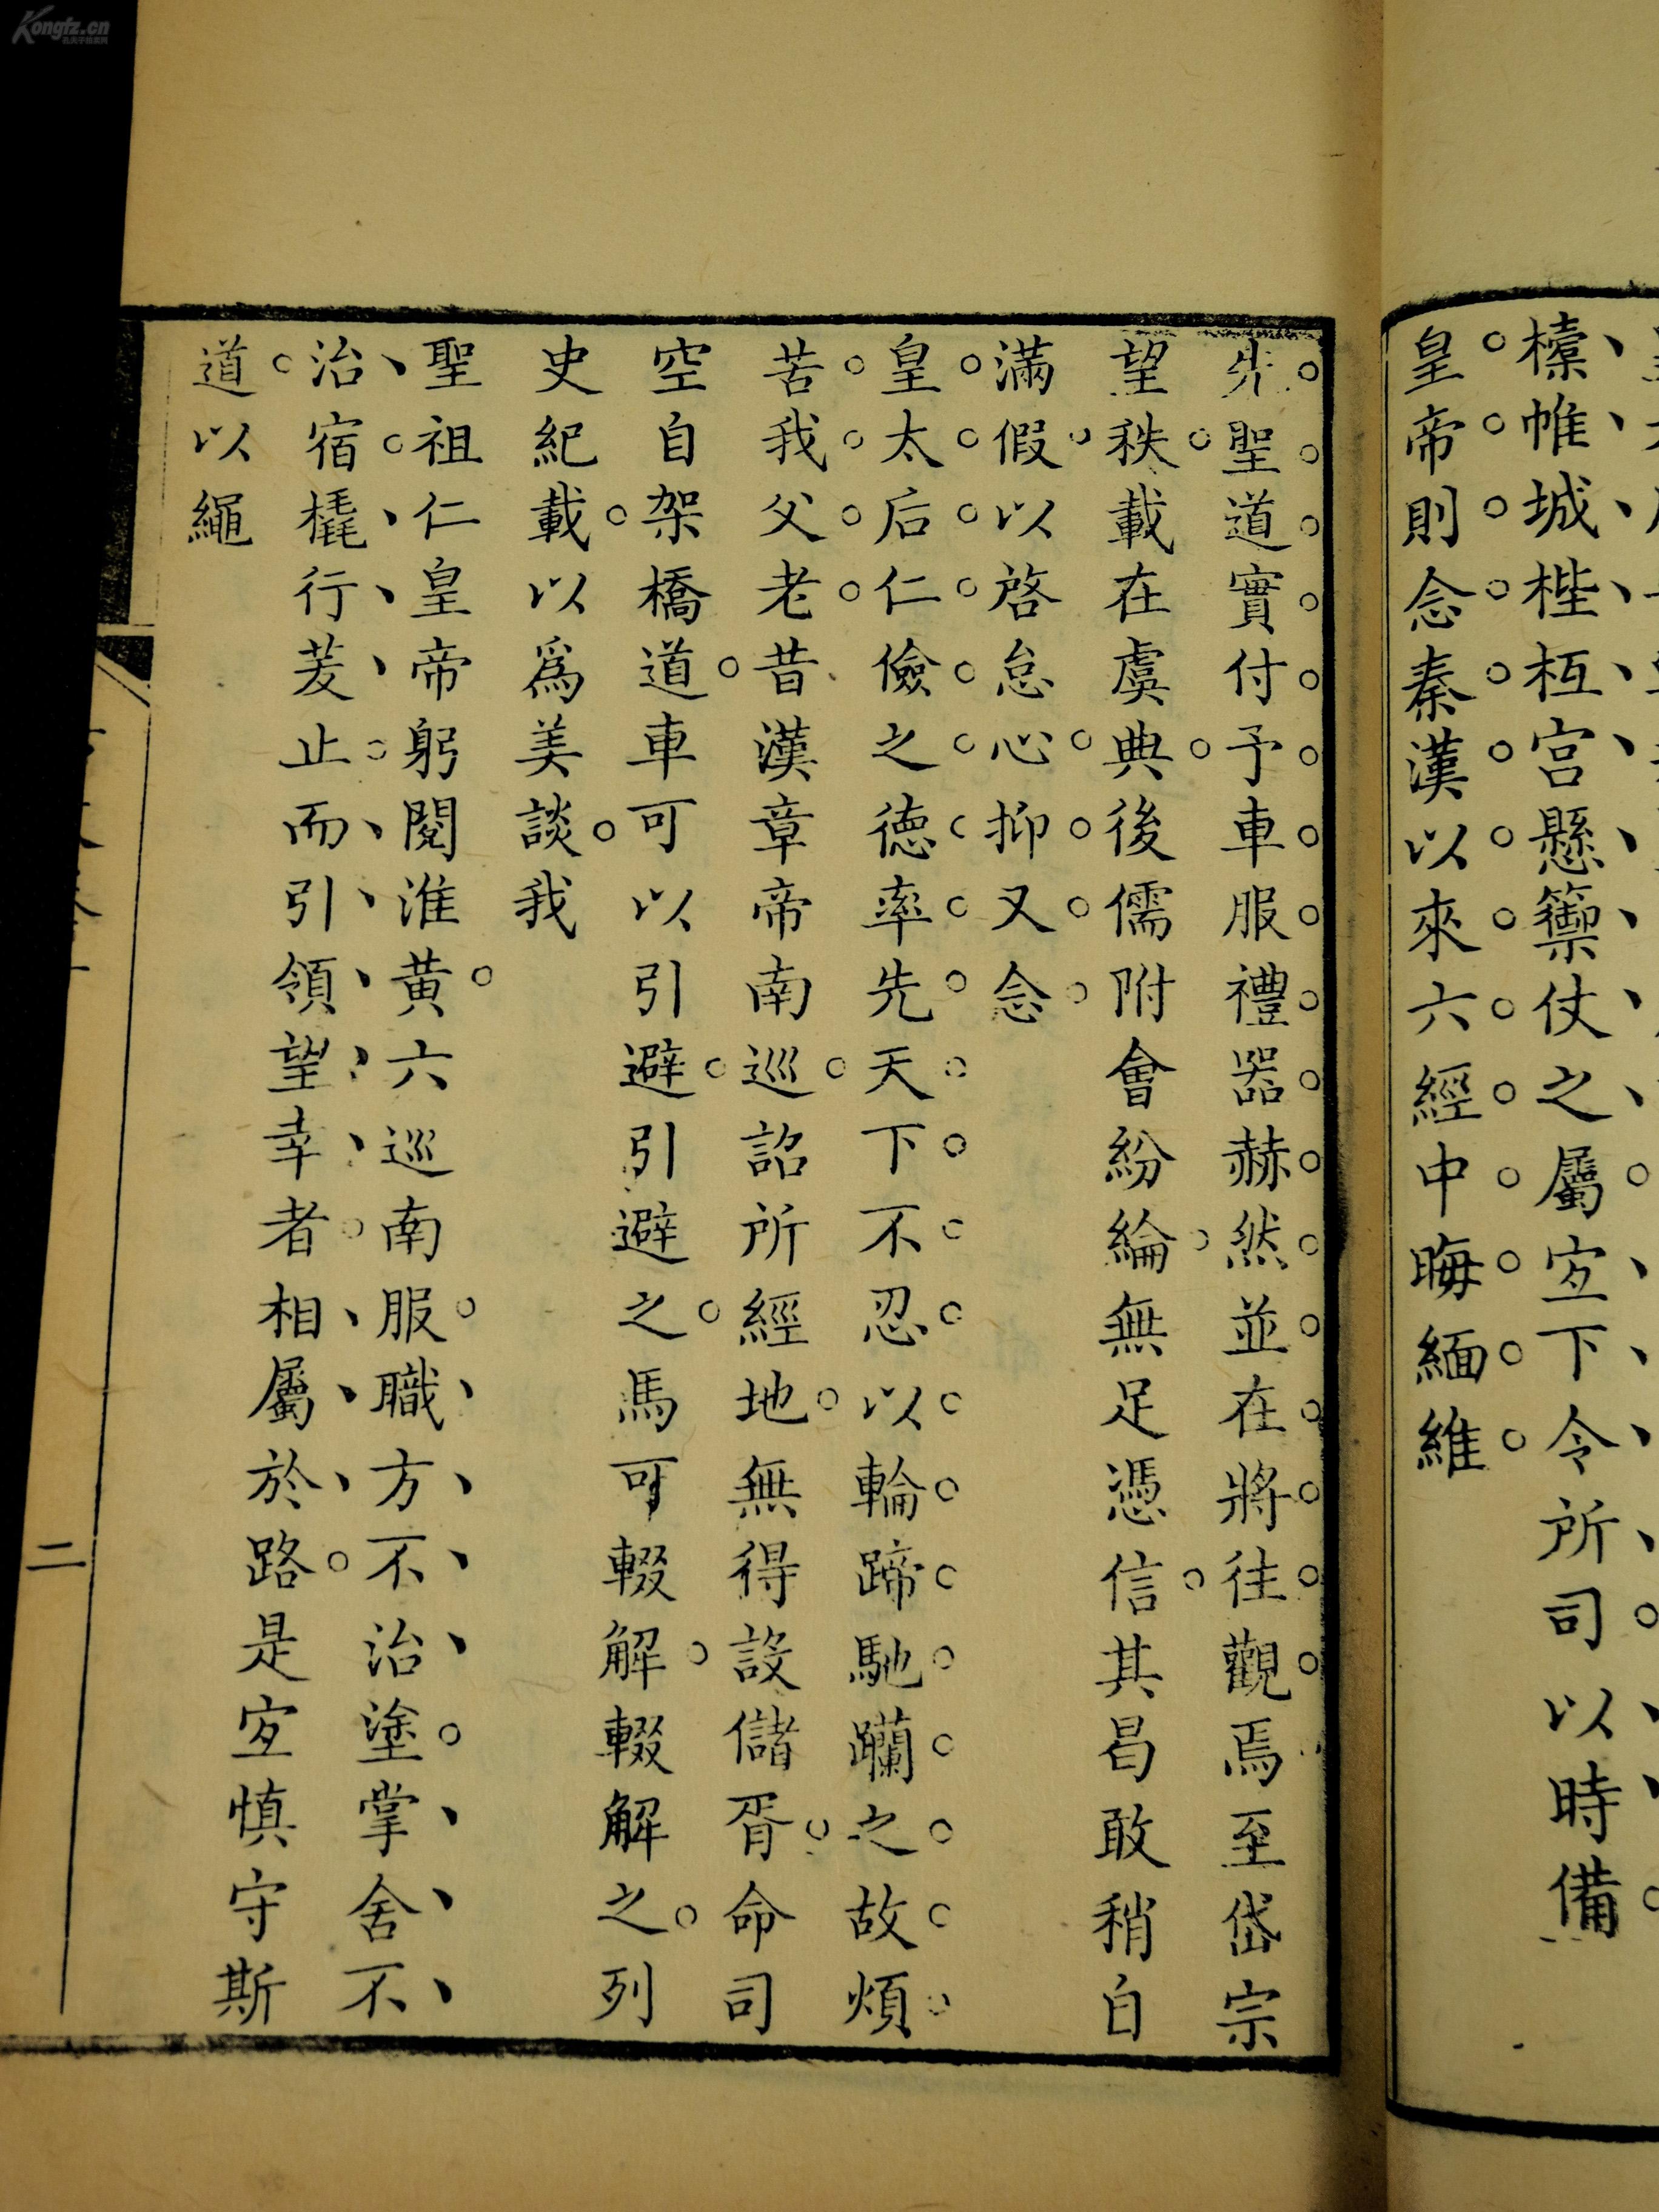 橑帷城梐枑宮懸籞仗之屬宐下令所司以時備
皇帝則念秦漢以來六經中晦緬維
先聖道實付予車服禮器赫然並在將往觀焉至岱宗
望秩載在虞典後儒附會紛綸無足憑信其曷敢稍自
滿假以啓怠心抑又念
皇太后仁儉之德率先天下不忍以輪蹄馳躪之故煩
苦我父老昔漢章帝南巡詔所經地無得設儲胥命司
空自架橋道車可以引避引避之馬可輟解輟解之列
史紀載以爲美談我
聖祖仁皇帝躬閱淮黃六巡南服職方不治塗掌舍不
治宿橇行茇止而引領望幸者相屬於路是宐慎守斯
道以繩
二
Kongfz.cn